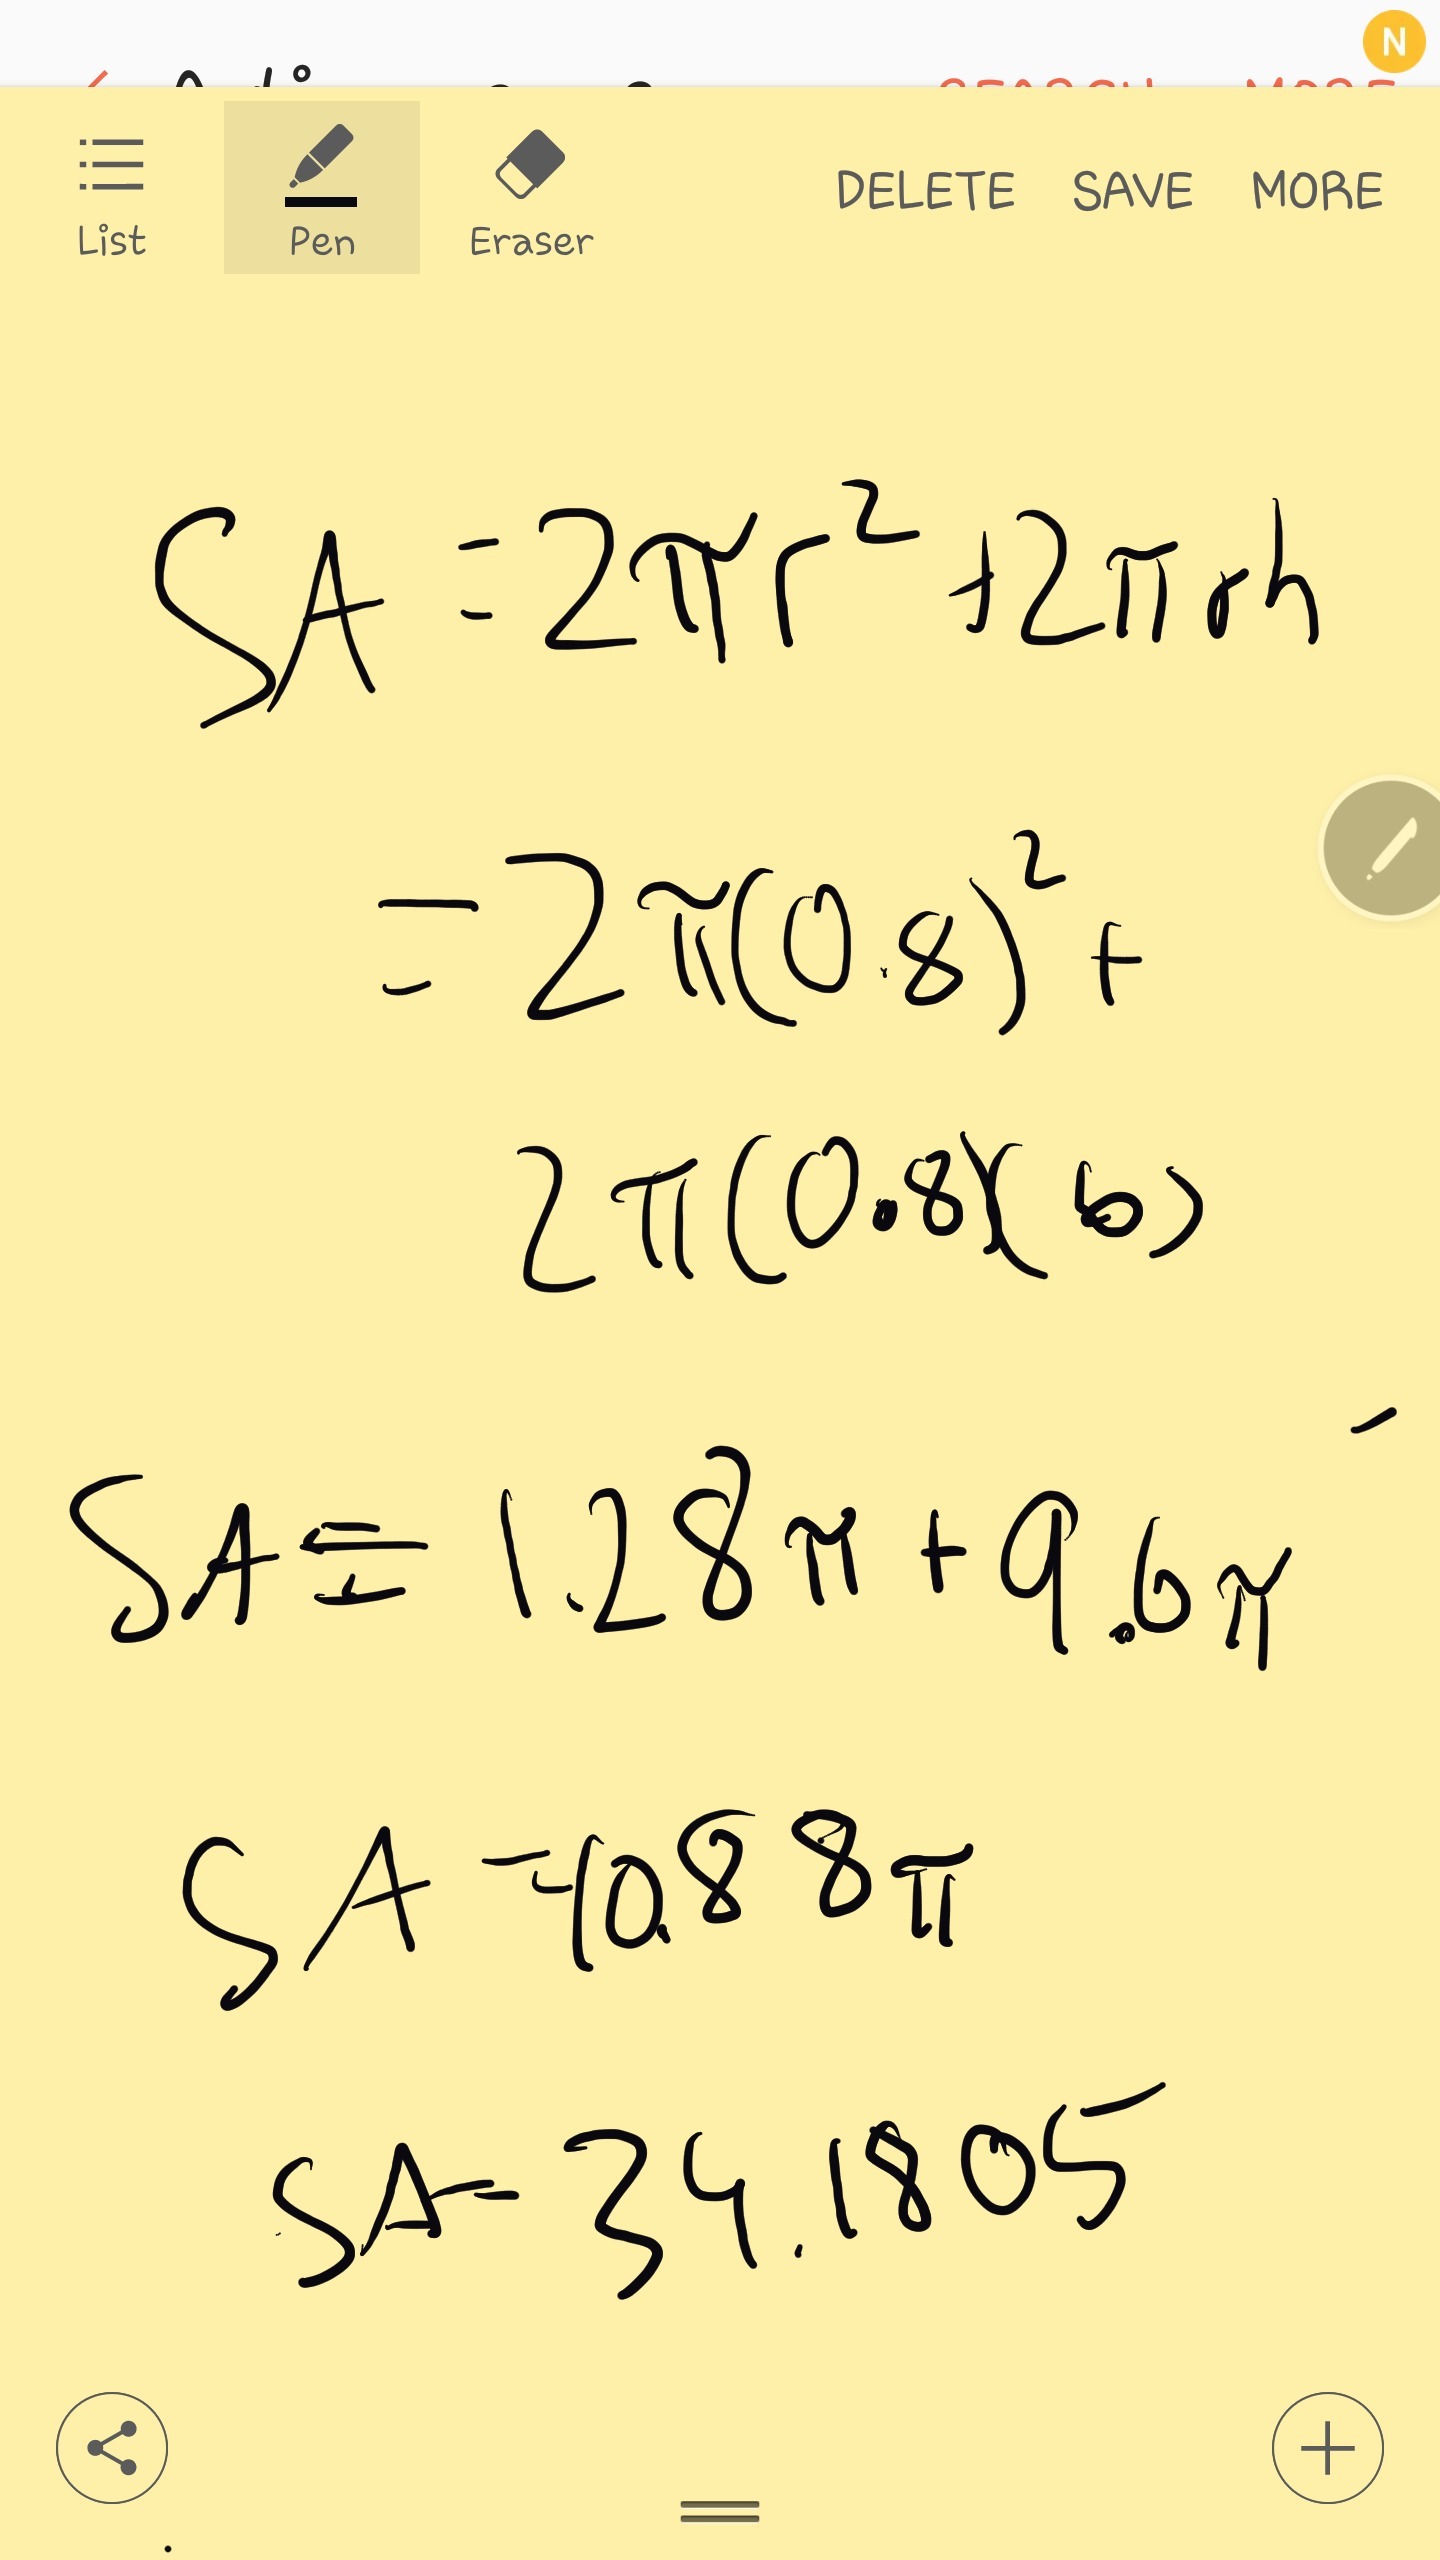 N
List Pen Eraser DELETE SAVE MORE
SA = 2πr² + 2πrh
= 2π(0.8)² +
2π(0.8)(6)
SA = 1.28π + 9.6π
SA = 10.88π
SA = 34.1805